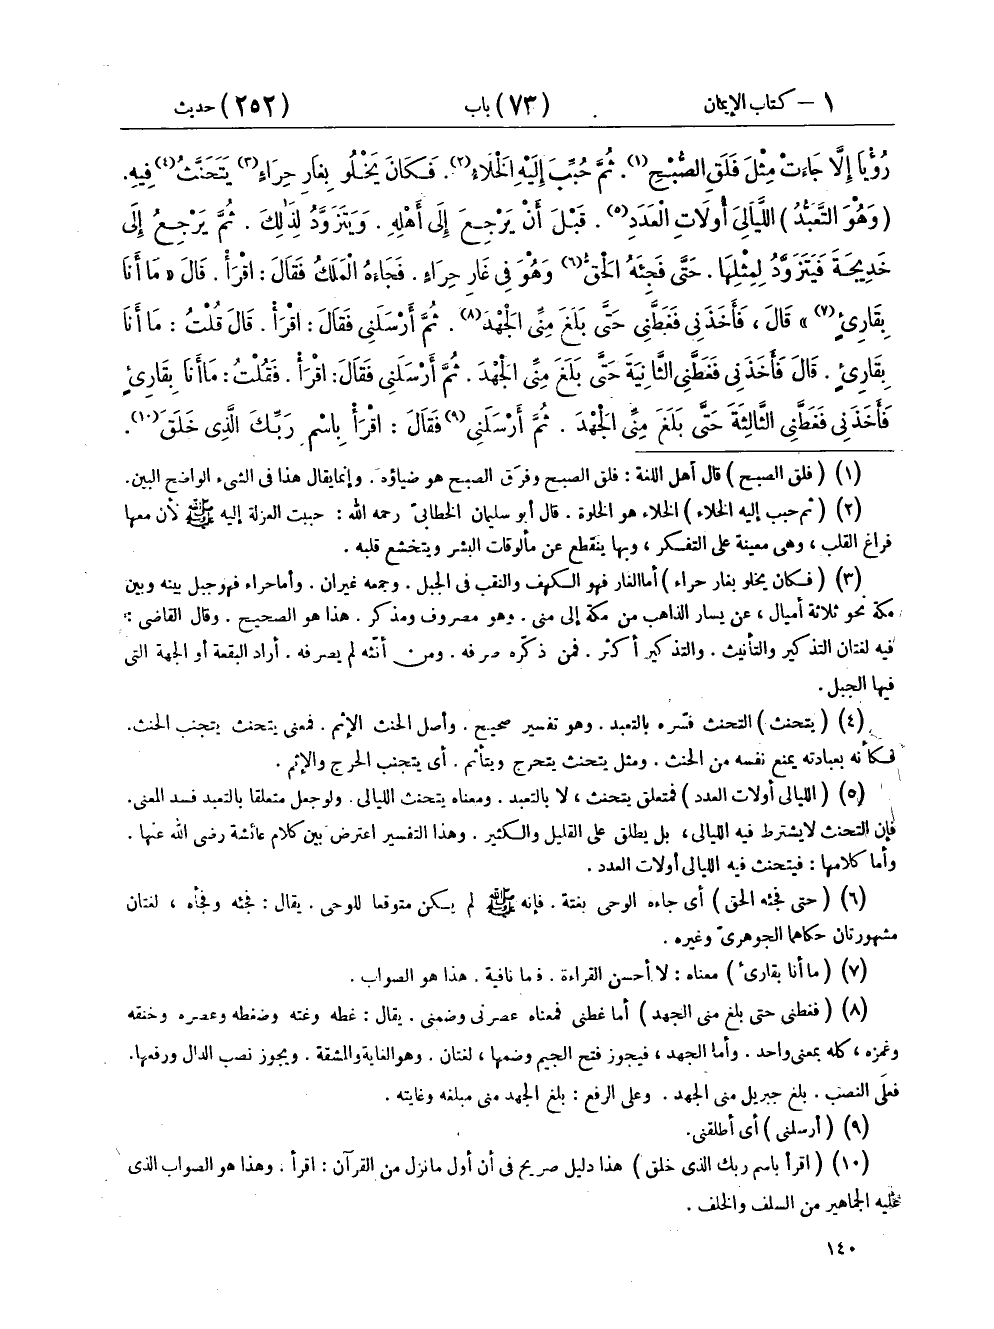 ١ – كتاب الإيمان (٧٣) باب (٢٥٢) حديث
رُؤْيَا إِلَّا جَاءَتْ مِثْلَ فَلَقِ الصُّبْحِ (١). ثُمَّ حُبِّبَ إِلَيْهِ الْخَلَاءُ (٢). فَكَانَ يَخْلُو بِغَارِ حِرَاءٍ (٣) يَتَحَنَّثُ (٤) فِيهِ.
(وَهُوَ التَّعَبُّدُ) اللَّيَالِيَ أُولَاتِ الْعَدَدِ (٥). قَبْلَ أَنْ يَرْجِعَ إِلَى أَهْلِهِ. وَيَتَزَوَّدُ لِذَلِكَ. ثُمَّ يَرْجِعُ إِلَى
خَدِيجَةَ فَيَتَزَوَّدُ لِمِثْلِهَا. حَتَّى فَجِئَهُ الْحَقُّ (٦) وَهُوَ فِي غَارِ حِرَاءٍ. فَجَاءَهُ الْمَلَكُ فَقَالَ: اقْرَأْ. قَالَ «مَا أَنَا
بِقَارِئٍ (٧)» قَالَ، فَأَخَذَنِي فَغَطَّنِي حَتَّى بَلَغَ مِنِّي الْجَهْدَ (٨). ثُمَّ أَرْسَلَنِي فَقَالَ: اقْرَأْ. قَالَ قُلْتُ: مَا أَنَا
بِقَارِئٍ. قَالَ فَأَخَذَنِي فَغَطَّنِي الثَّانِيَةَ حَتَّى بَلَغَ مِنِّي الْجَهْدَ. ثُمَّ أَرْسَلَنِي فَقَالَ: اقْرَأْ. فَقُلْتُ: مَا أَنَا بِقَارِئٍ
فَأَخَذَنِي فَغَطَّنِي الثَّالِثَةَ حَتَّى بَلَغَ مِنِّي الْجَهْدَ. ثُمَّ أَرْسَلَنِي (٩) فَقَالَ: اقْرَأْ بِاسْمِ رَبِّكَ الَّذِي خَلَقَ (١٠).
(١) (فلق الصبح) قال أهل اللغة: فلق الصبح وفرَق الصبح هو ضياؤه. وإنما يقال هذا فى الشىء الواضح البين.
(٢) (ثم حبب إليه الخلاء) الخلاء هو الخلوة. قال أبو سليمان الخطابىّ رحمه الله: حببت العزلة إليه ﷺ لأن معها
فراغ القلب، وهى معينة على التفكر، وبها ينقطع عن مألوفات البشر ويتخشع قلبه.
(٣) (فكان يخلو بغار حراء) أما الغار فهو الكهف والنقب فى الجبل. وجمعه غيران. وأما حراء فهو جبل بينه وبين
مكة نحو ثلاثة أميال، عن يسار الذاهب من مكة إلى منى. وهو مصروف ومذكر. هذا هو الصحيح. وقال القاضى:
فيه لغتان التذكير والتأنيث. والتذكير أكثر. فمن ذكّره صرفه. ومن أنّثه لم يصرفه. أراد البقعة أو الجهة التى
فيها الجبل.
(٤) (يتحنث) التحنث فسّره بالتعبد. وهو تفسير صحيح. وأصل الحنث الإثم. فمعنى يتحنث يتجنب الحنث.
فكأنه بعبادته يمنع نفسه من الحنث. ومثل يتحنث يتحرج ويتأثم. أى يتجنب الحرج والإثم.
(٥) (الليالى أولات العدد) فمتعلق يتحنث، لا بالتعبد. ومعناه يتحنث الليالى. ولو جعل متعلقا بالتعبد فسد المعنى.
فإن التحنث لا يشترط فيه الليالى، بل يطلق على القليل والكثير. وهذا التفسير اعترض بين كلام عائشة رضى الله عنها.
وأما كلامها: فيتحنث فيه الليالى أولات العدد.
(٦) (حتى فجئه الحق) أى جاءه الوحى بغتة. فإنه ﷺ لم يكن متوقعا للوحى. يقال: فجئه وفجأه، لغتان
مشهورتان حكاهما الجوهرىّ وغيره.
(٧) (ما أنا بقارئ) معناه: لا أحسن القراءة. فما نافية. هذا هو الصواب.
(٨) (فغطنى حتى بلغ منى الجهد) أما غطنى فمعناه عصرنى وضمنى. يقال: غطه وغته وضغطه وعصره وخنقه
وغمزه، كله بمعنى واحد. وأما الجهد، فيجوز فتح الجيم وضمها، لغتان. وهو الغاية والمشقة. ويجوز نصب الدال ورفعها.
فعلَى النصب. بلغ جبريل منى الجهد. وعلى الرفع: بلغ الجهد منى مبلغه وغايته.
(٩) (أرسلنى) أى أطلقنى.
(١٠) (اقرأ باسم ربك الذى خلق) هذا دليل صريح فى أن أول ما نزل من القرآن: اقرأ. وهذا هو الصواب الذى
عليه الجماهير من السلف والخلف.
١٤٠